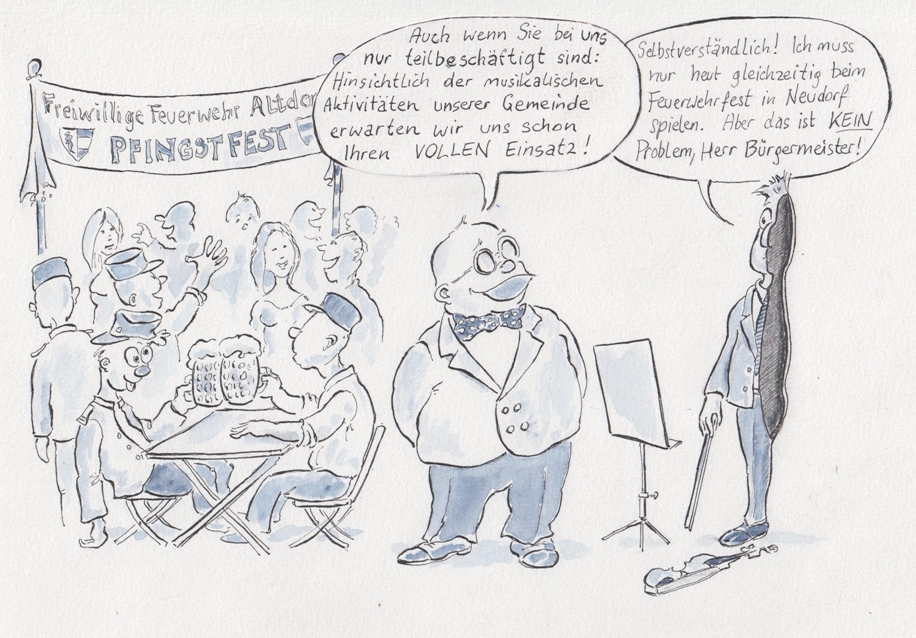 Freiwillige Feuerwehr Altdor
PFINGSTFEST
Auch wenn Sie bei uns
nur teilbeschäftigt sind:
Hinsichtlich der musikalischen
Aktivitäten unserer Gemeinde
erwarten wir uns schon
Ihren VOLLEN Einsatz!
Selbstverständlich! Ich muss
nur heut gleichzeitig beim
Feuerwehrfest in Neudorf
spielen. Aber das ist KEIN
Problem, Herr Bürgermeister!